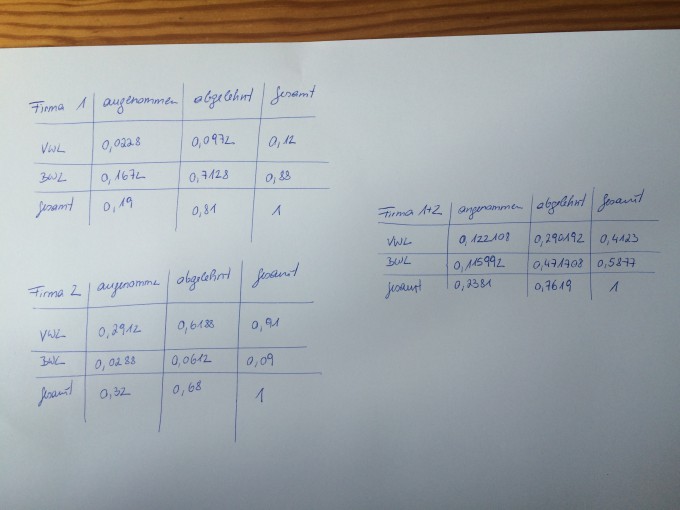 Firma 1 angenommen abgelehnt Gesamt
VWL 0,0228 0,0972 0,12
BWL 0,1672 0,7128 0,88
Gesamt 0,19 0,81 1
Firma 2 angenomme abgelehnt Gesamt
VWL 0,2912 0,6188 0,91
BWL 0,0288 0,0612 0,09
Gesamt 0,32 0,68 1
Firma 1+2 angenommen abgelehnt Gesamt
VWL 0,122108 0,290192 0,4123
BWL 0,115992 0,471708 0,5877
Gesamt 0,2381 0,7619 1